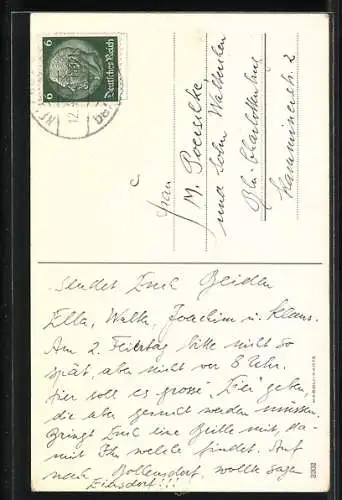 6
6
Deutsches Reich
12.
Frau
M. Poeselke
und Sohn Walterchen
Bln. Charlottenburg
Kamminerstr. 2
sendet Euch Beiden
Ella, Walter, Joachim u. Klaus.
Am 2. Feiertag bitte nicht so
spät, aber nicht vor 8 Uhr.
hier soll es grosse „Eier“ geben,
die aber gesucht werden müssen.
Bringt Euch eine Brille mit, da-
mit Ihr welche findet. Auf
nach Bollensdorf, wollte sagen
Eihsdorf!!!
2332